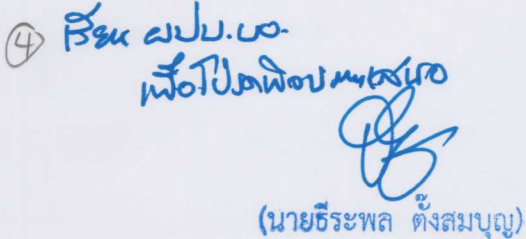 ④ เรียน ผปบ.บอ.
เพื่อโปรดพิจารณาเสนอ
(นายธีระพล ตั้งสมบุญ)